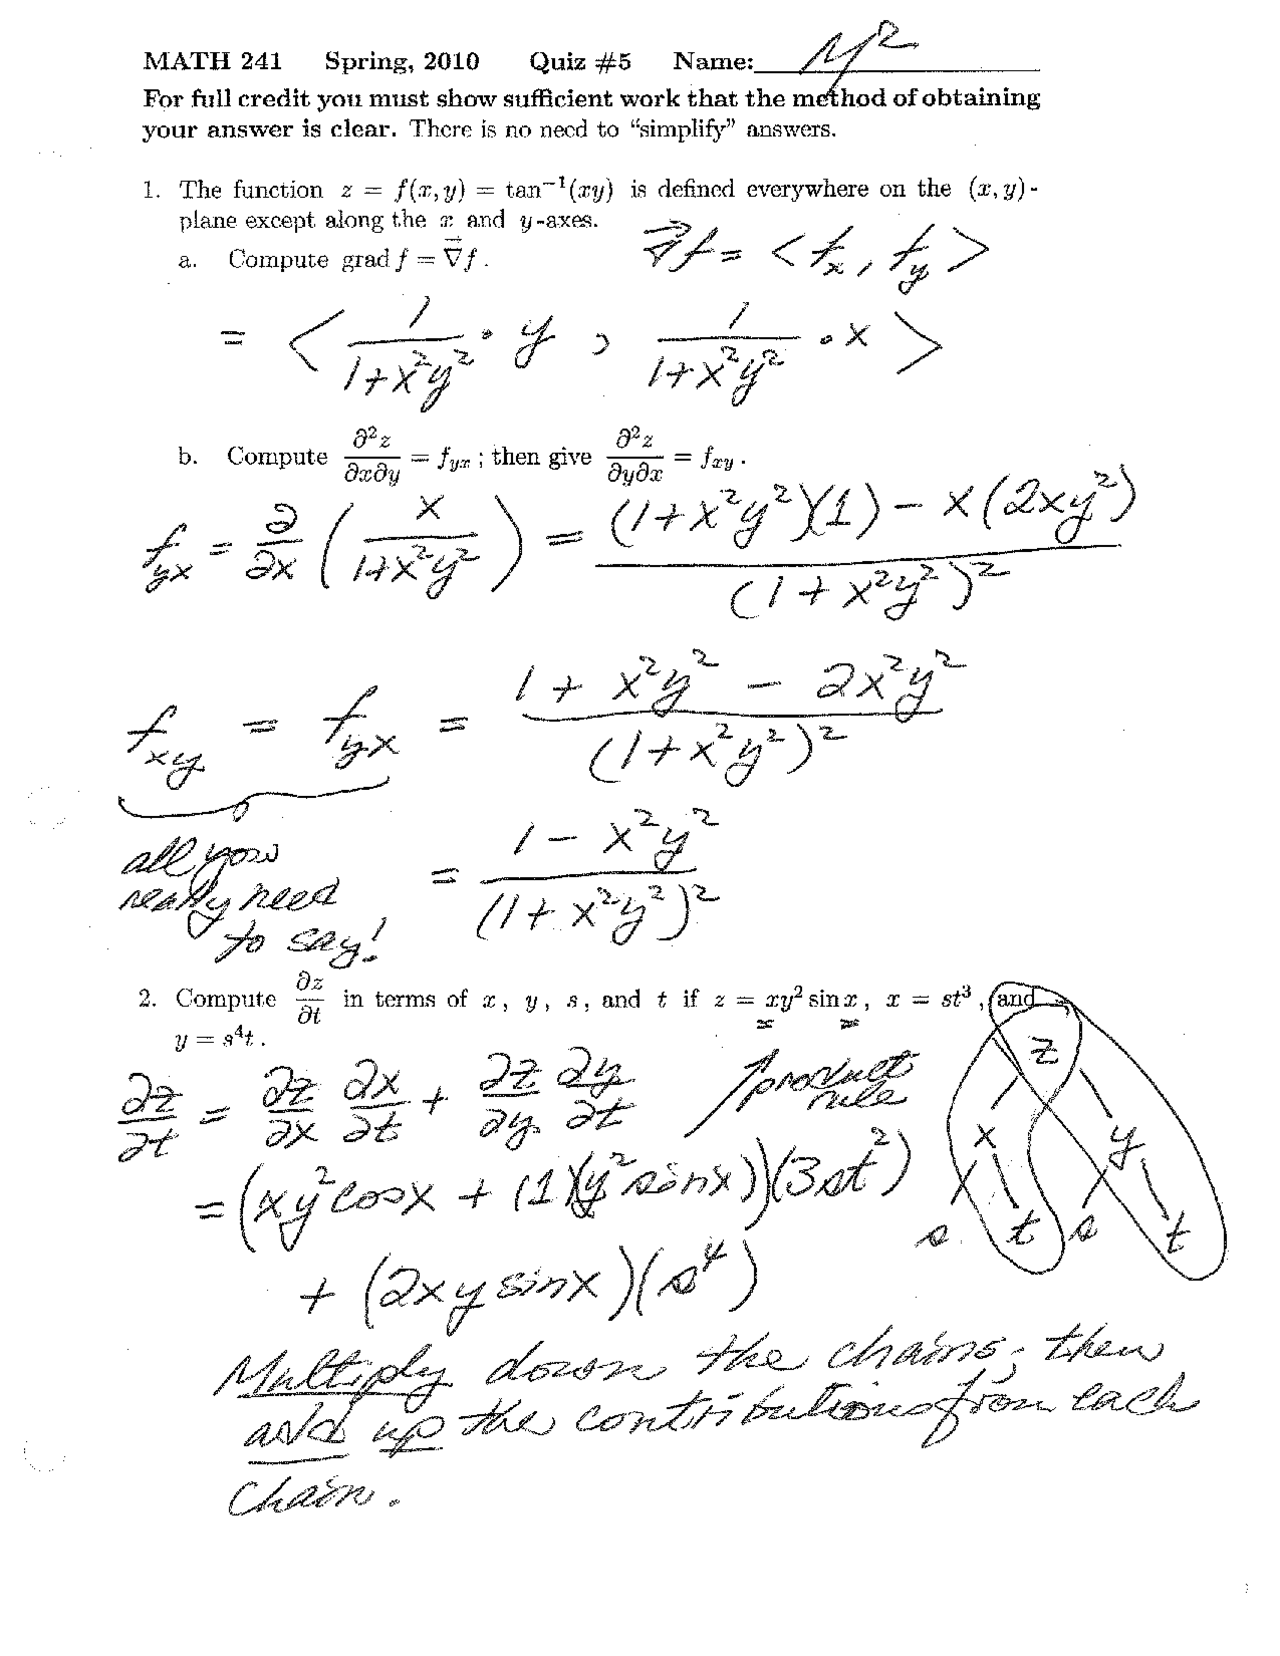 MATH 241 Spring, 2010 Quiz #5 Name: M²
For full credit you must show sufficient work that the method of obtaining
your answer is clear. There is no need to “simplify” answers.
1. The function z = f(x, y) = tan⁻¹(xy) is defined everywhere on the (x, y)-
plane except along the x and y-axes.
a. Compute grad f = ∇⃗f . ∇⃗f = <f_x, f_y>
= < 1/(1+x²y²) · y , 1/(1+x²y²) · x >
b. Compute ∂²z/∂x∂y = f_yx ; then give ∂²z/∂y∂x = f_xy .
f_yx = ∂/∂x ( x/(1+x²y²) ) = ((1+x²y²)(1) − x(2xy²))/(1+x²y²)²
f_xy = f_yx = (1 + x²y² − 2x²y²)/(1+x²y²)²
all you
really need
to say!
= (1 − x²y²)/(1+x²y²)²
2. Compute ∂z/∂t in terms of x, y, s, and t if z = xy² sin x, x = st³, and
y = s⁴t.
∂z/∂t = ∂z/∂x ∂x/∂t + ∂z/∂y ∂y/∂t
product
rule
z
x y
s t s t
= (xy² cos x + (1)(y² sin x))(3st²)
+ (2xy sin x)(s⁴)
Multiply down the chains; then
add up the contributions from each
chain.